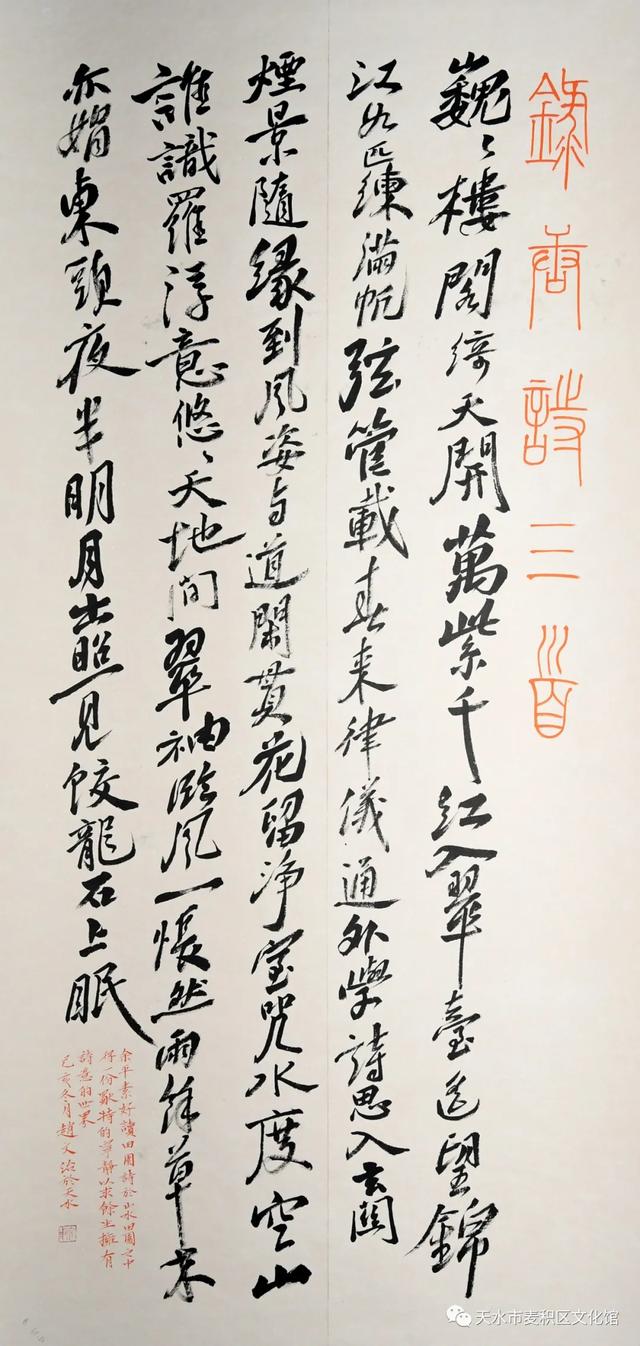 錄唐詩三首
巍〻樓閣綺天開萬紫千紅入翠臺遙望錦
江如匹練滿帆弦管載春来律儀通外學詩思入玄關
煙景隨緣到風姿与道閑貫花留淨室咒水度空山
誰識羅浮意悠〻天地间翠袖臨風一悵然雨餘草木
亦娟東頭夜半明月出照見蛟龍石上眠
余平素好讀田園詩於山水田園之中
得一份獨特的寧靜以求餘生擁有
詩意的世界
己亥冬月趙文治於天水
天水市麦积区文化馆